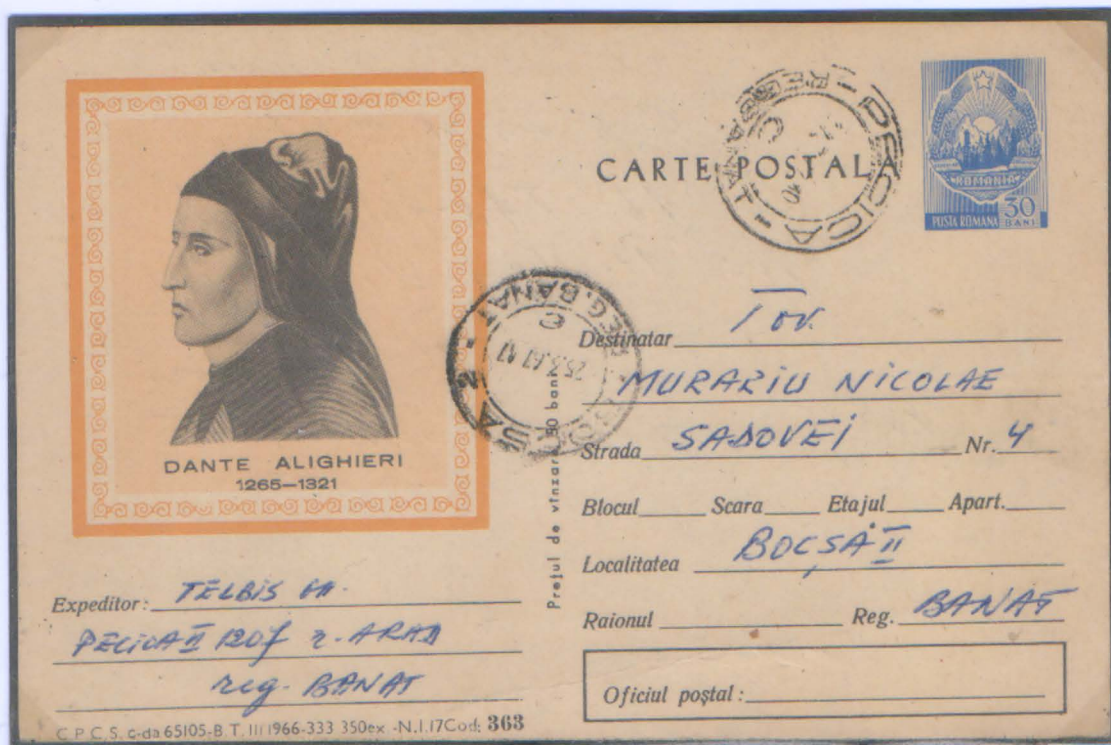 DANTE ALIGHIERI
1265—1321
CARTE POSTALA
ROMANIA
POSTA ROMANA 30 BANI
PECICA
REG. BANAT
25.3.67.17
Destinatar Tov.
MURARIU NICOLAE
Strada SADOVEI Nr. 4
Blocul Scara Etajul Apart.
Localitatea BOCȘA II
Raionul Reg. BANAT
Oficiul poștal:
Prețul de vînzare 50 bani
Expeditor: TELBIS
PECICA II 1207 r. ARAD
reg. BANAT
C.P.C.S. c-da 65105-B.T. III 1966-333 350ex.-N.I.17 Cod: 363